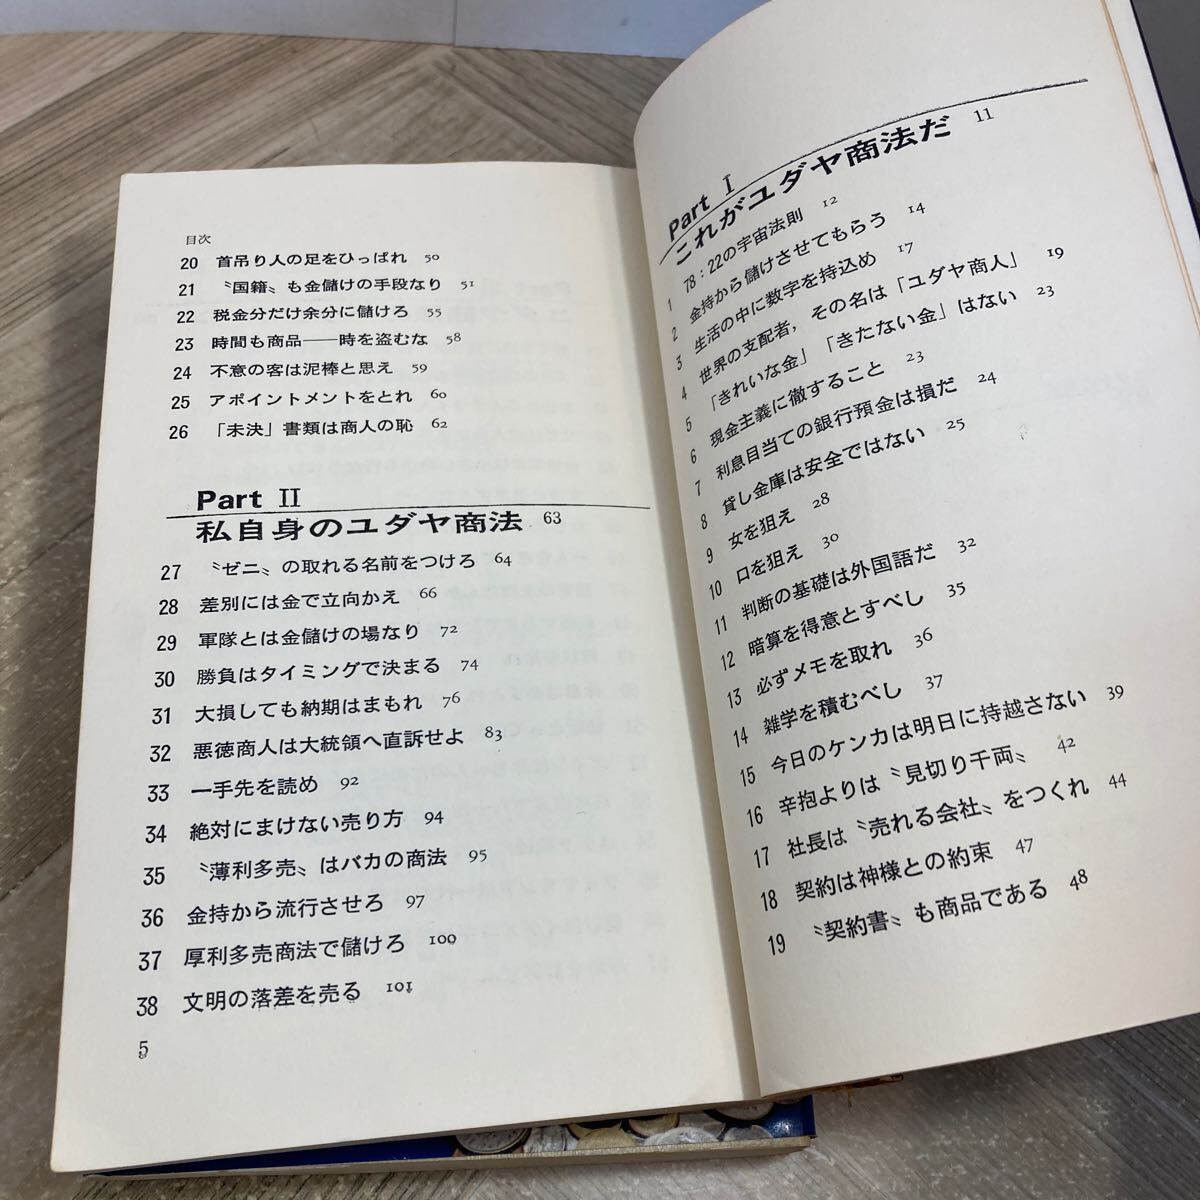 Part I
これがユダヤ商法だ 11
1 78:22の宇宙法則 12
2 金持から儲けさせてもらう 14
3 生活の中に数字を持込め 17
4 世界の支配者,その名は「ユダヤ商人」 19
5 「きれいな金」「きたない金」はない 23
6 現金主義に徹すること 23
7 利息目当ての銀行預金は損だ 24
8 貸し金庫は安全ではない 25
9 女を狙え 28
10 口を狙え 30
11 判断の基礎は外国語だ 32
12 暗算を得意とすべし 35
13 必ずメモを取れ 36
14 雑学を積むべし 37
15 今日のケンカは明日に持越さない 39
16 辛抱よりは〝見切り千両〟 42
17 社長は〝売れる会社〟をつくれ 44
18 契約は神様との約束 47
19 〝契約書〟も商品である 48
目次
20 首吊り人の足をひっぱれ 50
21 〝国籍〟も金儲けの手段なり 51
22 税金分だけ余分に儲けろ 55
23 時間も商品——時を盗むな 58
24 不意の客は泥棒と思え 59
25 アポイントメントをとれ 60
26 「未決」書類は商人の恥 62
Part II
私自身のユダヤ商法 63
27 〝ゼニ〟の取れる名前をつけろ 64
28 差別には金で立向かえ 66
29 軍隊とは金儲けの場なり 72
30 勝負はタイミングで決まる 74
31 大損しても納期はまもれ 76
32 悪徳商人は大統領へ直訴せよ 83
33 一手先を読め 92
34 絶対にまけない売り方 94
35 〝薄利多売〟はバカの商法 95
36 金持から流行させろ 97
37 厚利多売商法で儲けろ 100
38 文明の落差を売る 101
5